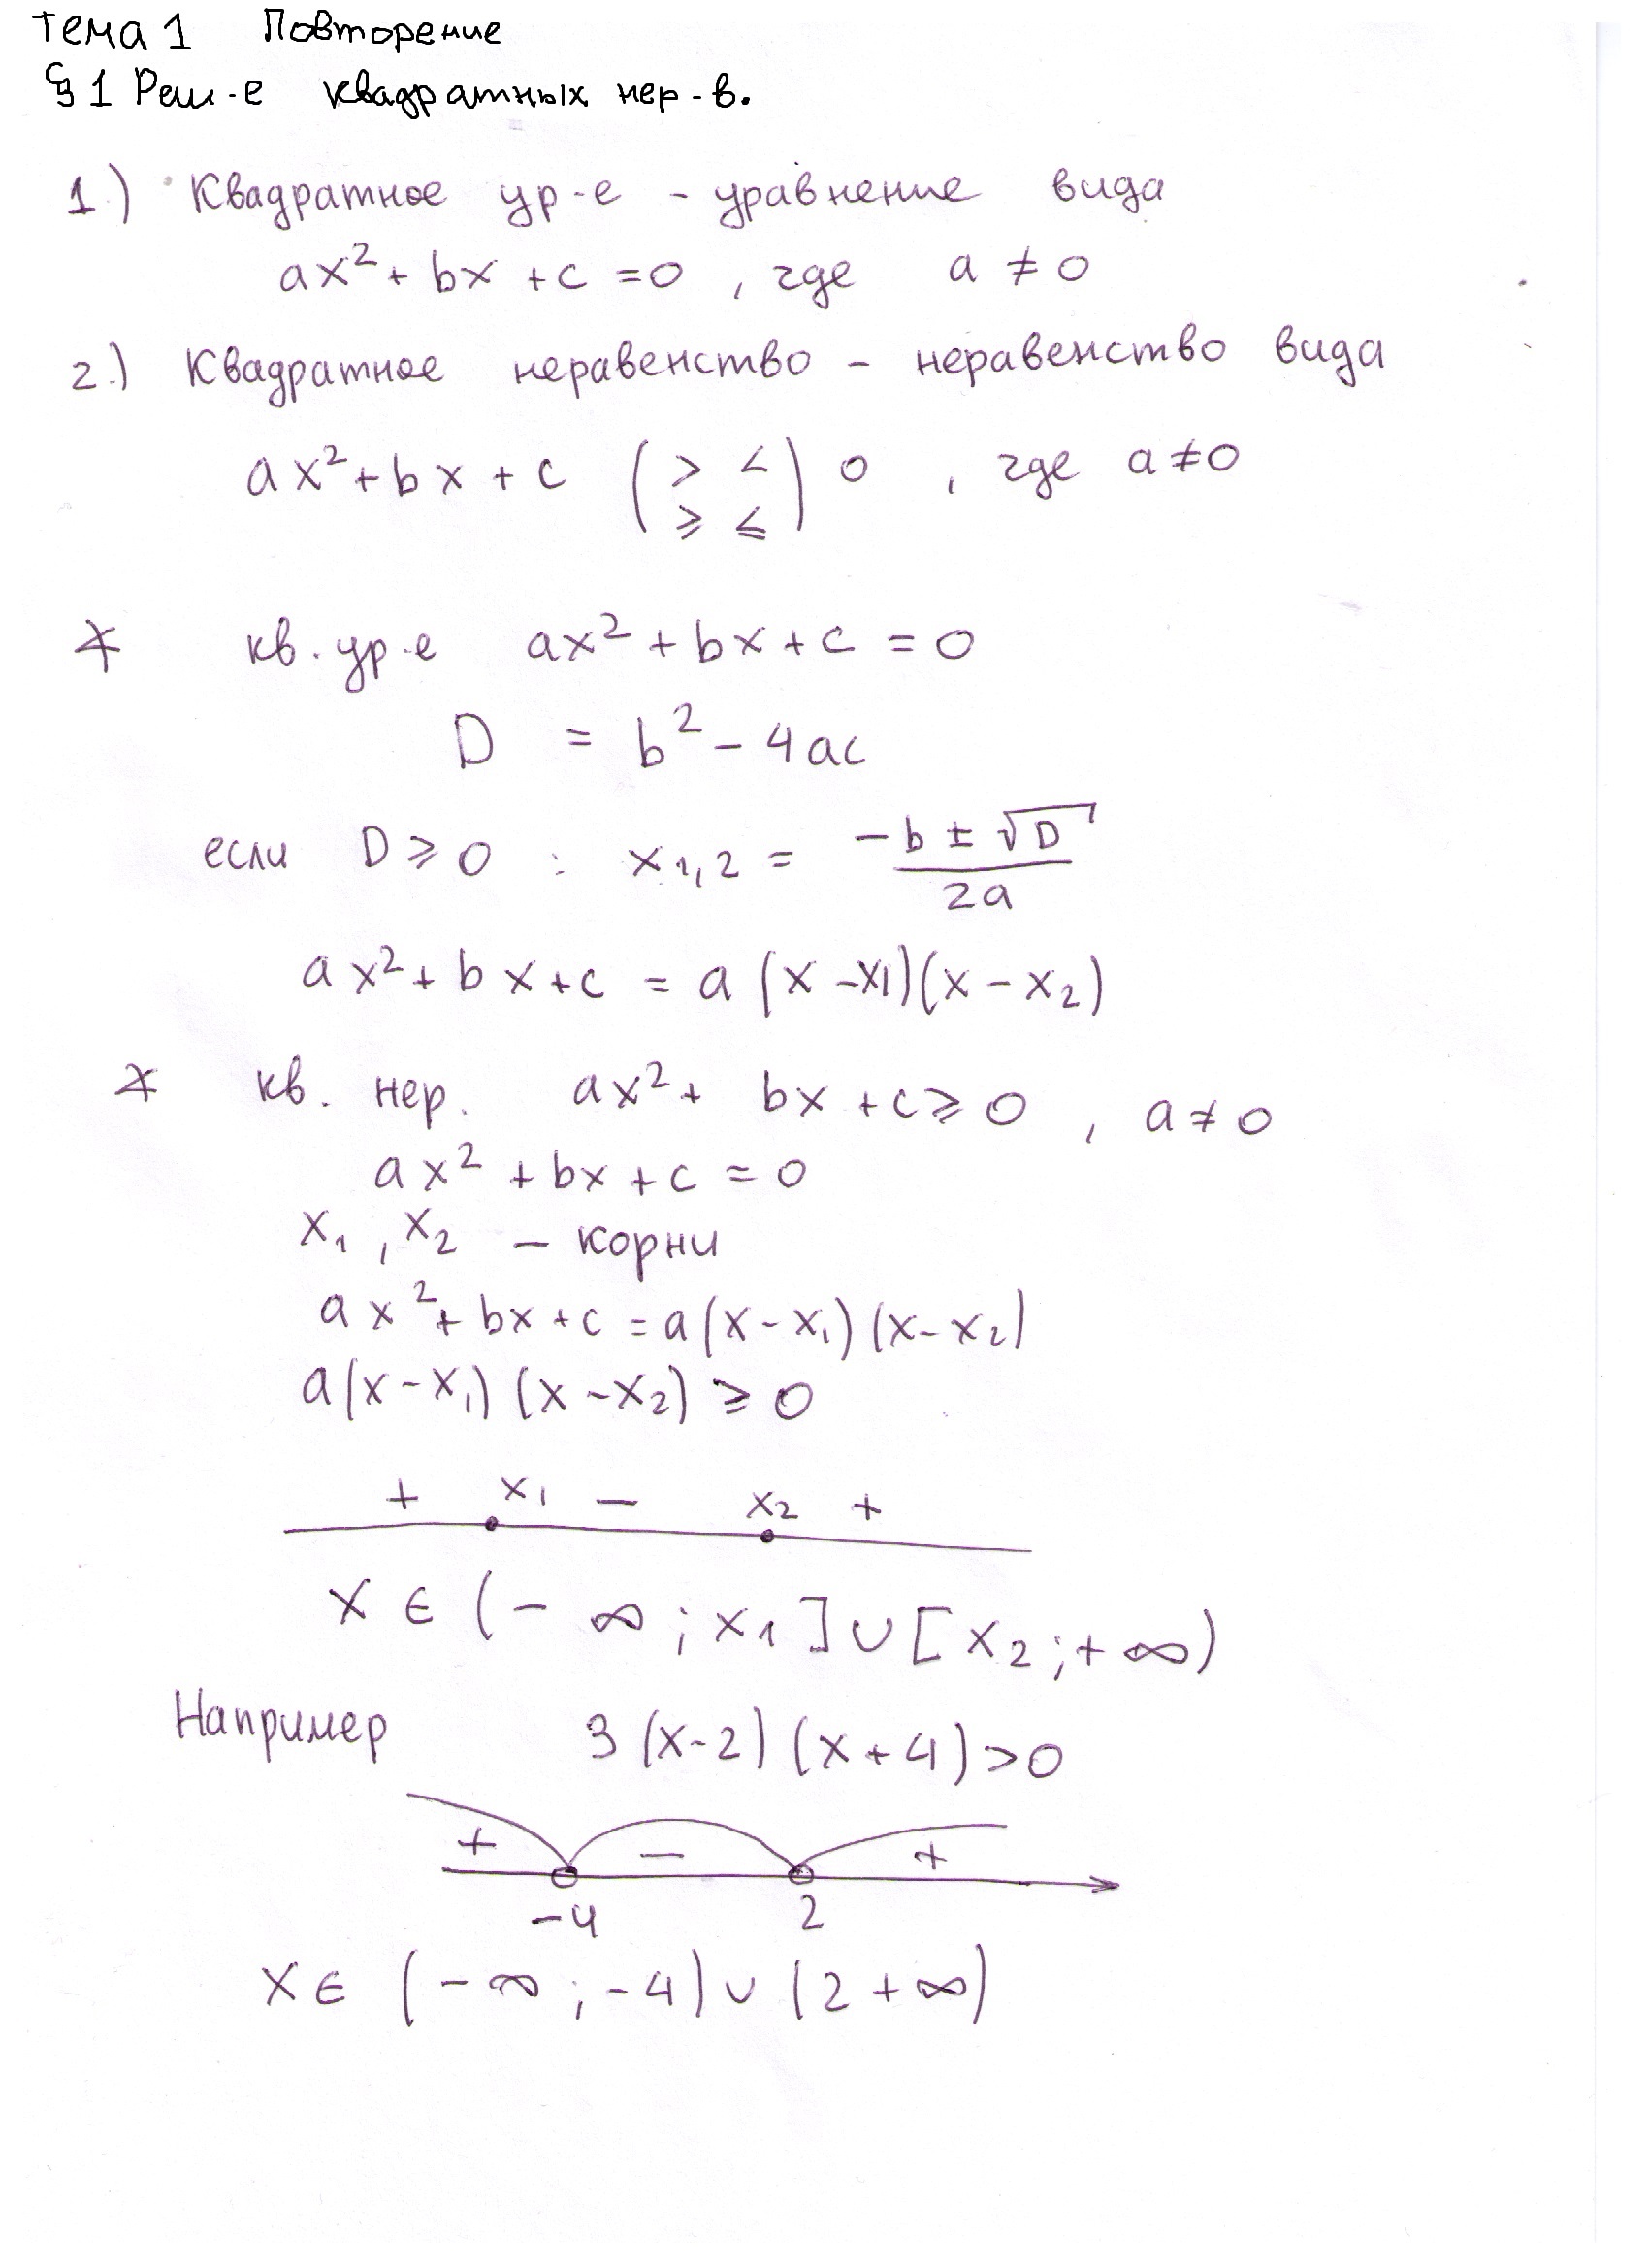 Тема 1 Повторение
§1 Реш-е квадратных нер-в.
1.) Квадратное ур-е - уравнение вида
ax² + bx + c = 0, где a ≠ 0
2.) Квадратное неравенство - неравенство вида
ax² + bx + c (> < ⩾ ⩽) 0, где a ≠ 0
* кв. ур-е ax² + bx + c = 0
D = b² - 4ac
если D ⩾ 0 : x₁,₂ = (-b ± √D) / 2a
ax² + bx + c = a(x - x₁)(x - x₂)
* кв. нер. ax² + bx + c ⩾ 0, a ≠ 0
ax² + bx + c = 0
x₁, x₂ - корни
ax² + bx + c = a(x - x₁)(x - x₂)
a(x - x₁)(x - x₂) ⩾ 0
+ x₁ - x₂ +
x ∈ (-∞; x₁] ∪ [x₂; +∞)
Например 3(x-2)(x+4) > 0
+ - +
-4 2
x ∈ (-∞; -4) ∪ (2 +∞)